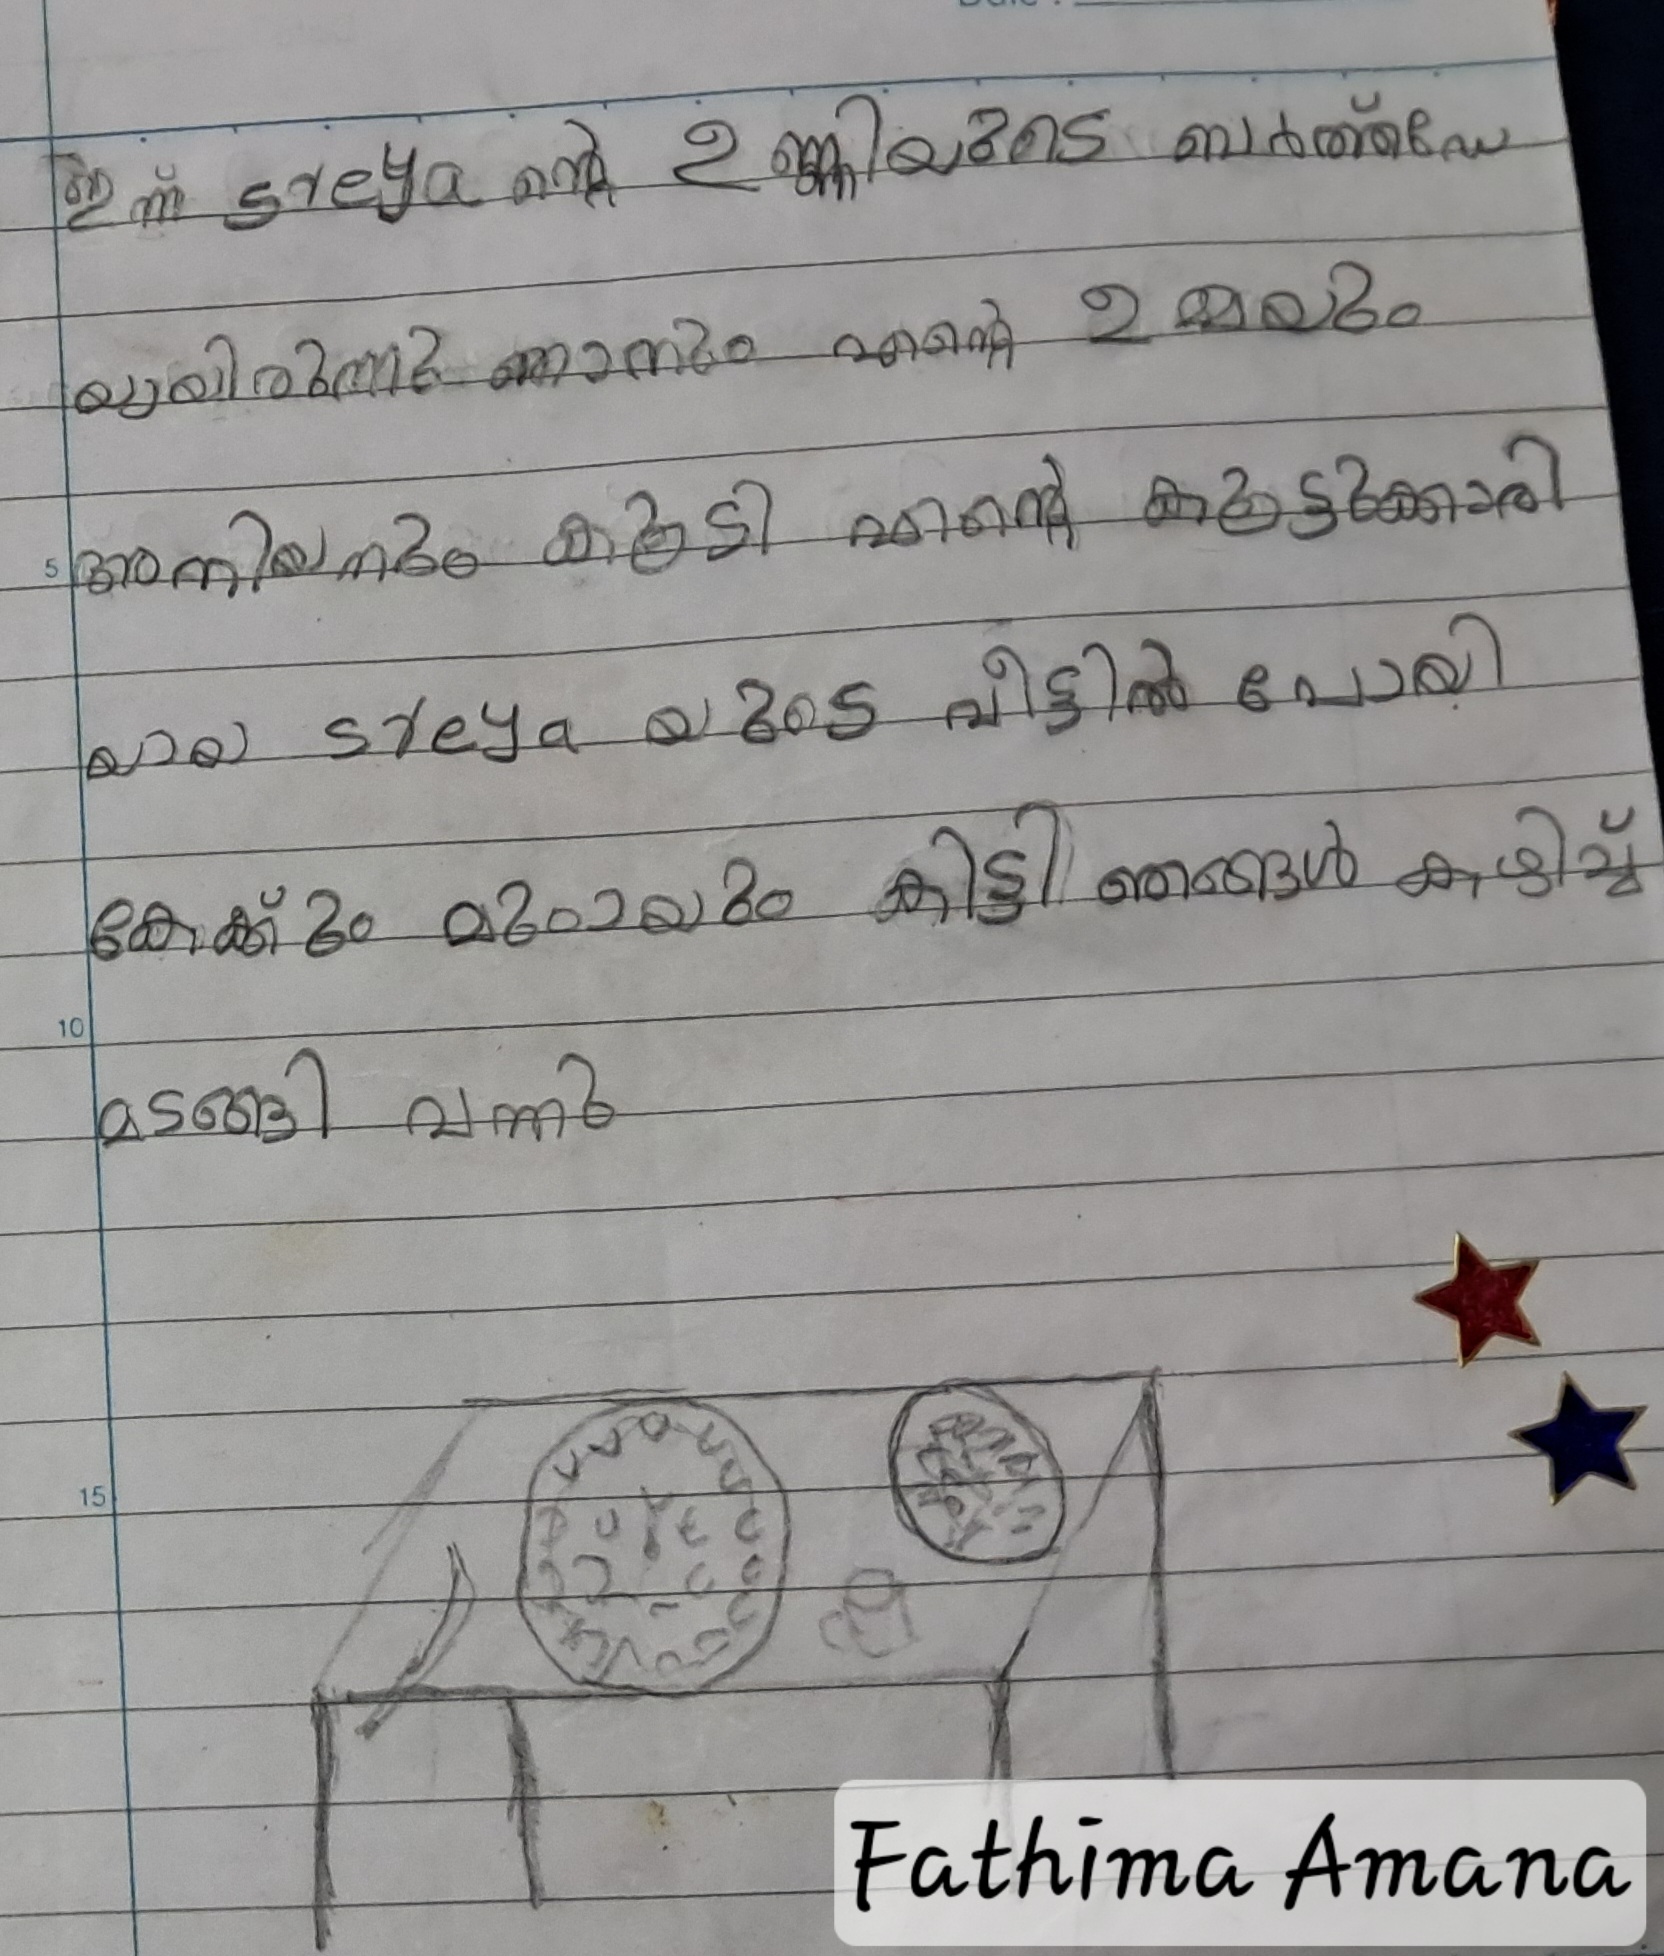 ഇന്ന് sreya ന്റെ ഉണ്ണിയുടെ ബർത്ത്ഡേ
യായിരുന്നു ഞാനും എന്റെ ഉമ്മയും
5 അനിയനും കൂടി എന്റെ കൂട്ടുക്കാരി
യായ sreya യുടെ വീട്ടിൽ പോയി
കേക്ക്ും മുഠായും കിട്ടി ഞങ്ങൾ കഴിച്ച്
10
മടങ്ങി വന്നു
15
Fathima Amana